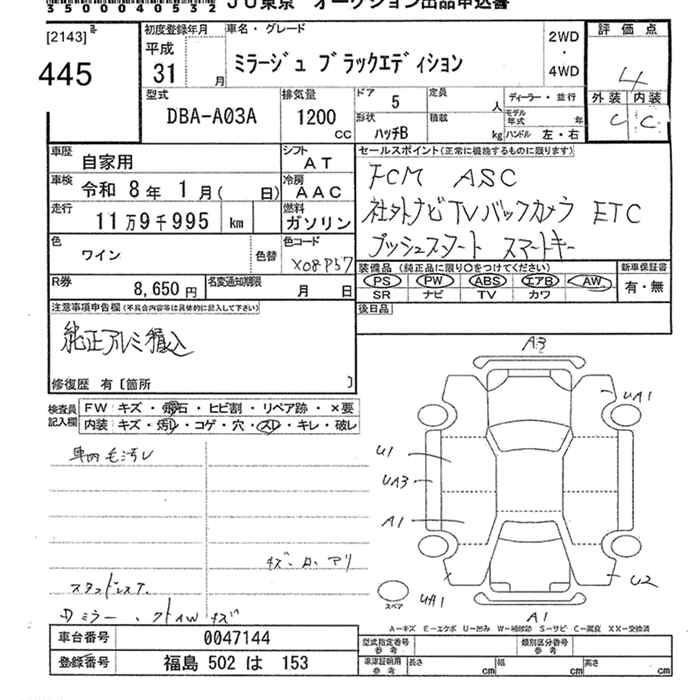 35000040532 JU東京 オークション出品申込書
[2143]
445
初度登録年月 平成 31 月
車名・グレード
ミラージュ ブラックエディション
2WD
・
4WD
評価点
4
外装 内装
C C
型式 DBA-A03A
排気量 1200 cc
ドア 5
定員 人
ディーラー・並行
形状 ハッチB
積載 kg
モデル年式 年
ハンドル 左・右
車歴 自家用
シフト AT
車検 令和 8年 1月( 日)
冷房 AAC
走行 11万9千995 km
燃料 ガソリン
色 ワイン
色替
色コード X08P57
R券 8,650円
名変通知期限 月 日
セールスポイント(正常に機能するものに限ります)
FCM ASC
社外ナビTVバックカメラ ETC
プッシュスタート スマートキー
装備品 (純正品に限り○をつけてください)
PS PW ABS エアB AW
SR ナビ TV カワ
新車保証書
有・無
後日品
注意事項申告欄(不具合内容等は具体的に記入して下さい)
純正アルミ積込
修復歴 有〔箇所 〕
検査員記入欄
FW キズ・飛石・ヒビ割・リペア跡・×要
内装 キズ・汚レ・コゲ・穴・スレ・キレ・破レ
車内毛汚レ
スタッドレスT.
A3
UA1
U1
UA3
A1
U2
UA1
A1
スペア
A-キズ E-エクボ U-凹み W-補修跡 S-サビ C-腐食 XX-交換済
車台番号 0047144
登録番号 福島 502 は 153
型式指定番号 参考
類別区分番号 参考
車庫証明用 参考
長さ cm
幅 cm
高さ cm